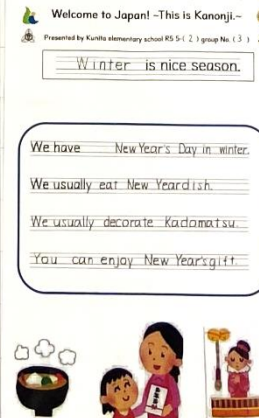 Welcome to Japan! ~This is Kanonji.~
Presented by Kunita elementary school RS 5-( 2 ) group No. ( 3 )
Winter is nice season.
We have New Year's Day in winter.
We usually eat New Year dish.
We usually decorate Kadomatsu.
You can enjoy New Year's gift.